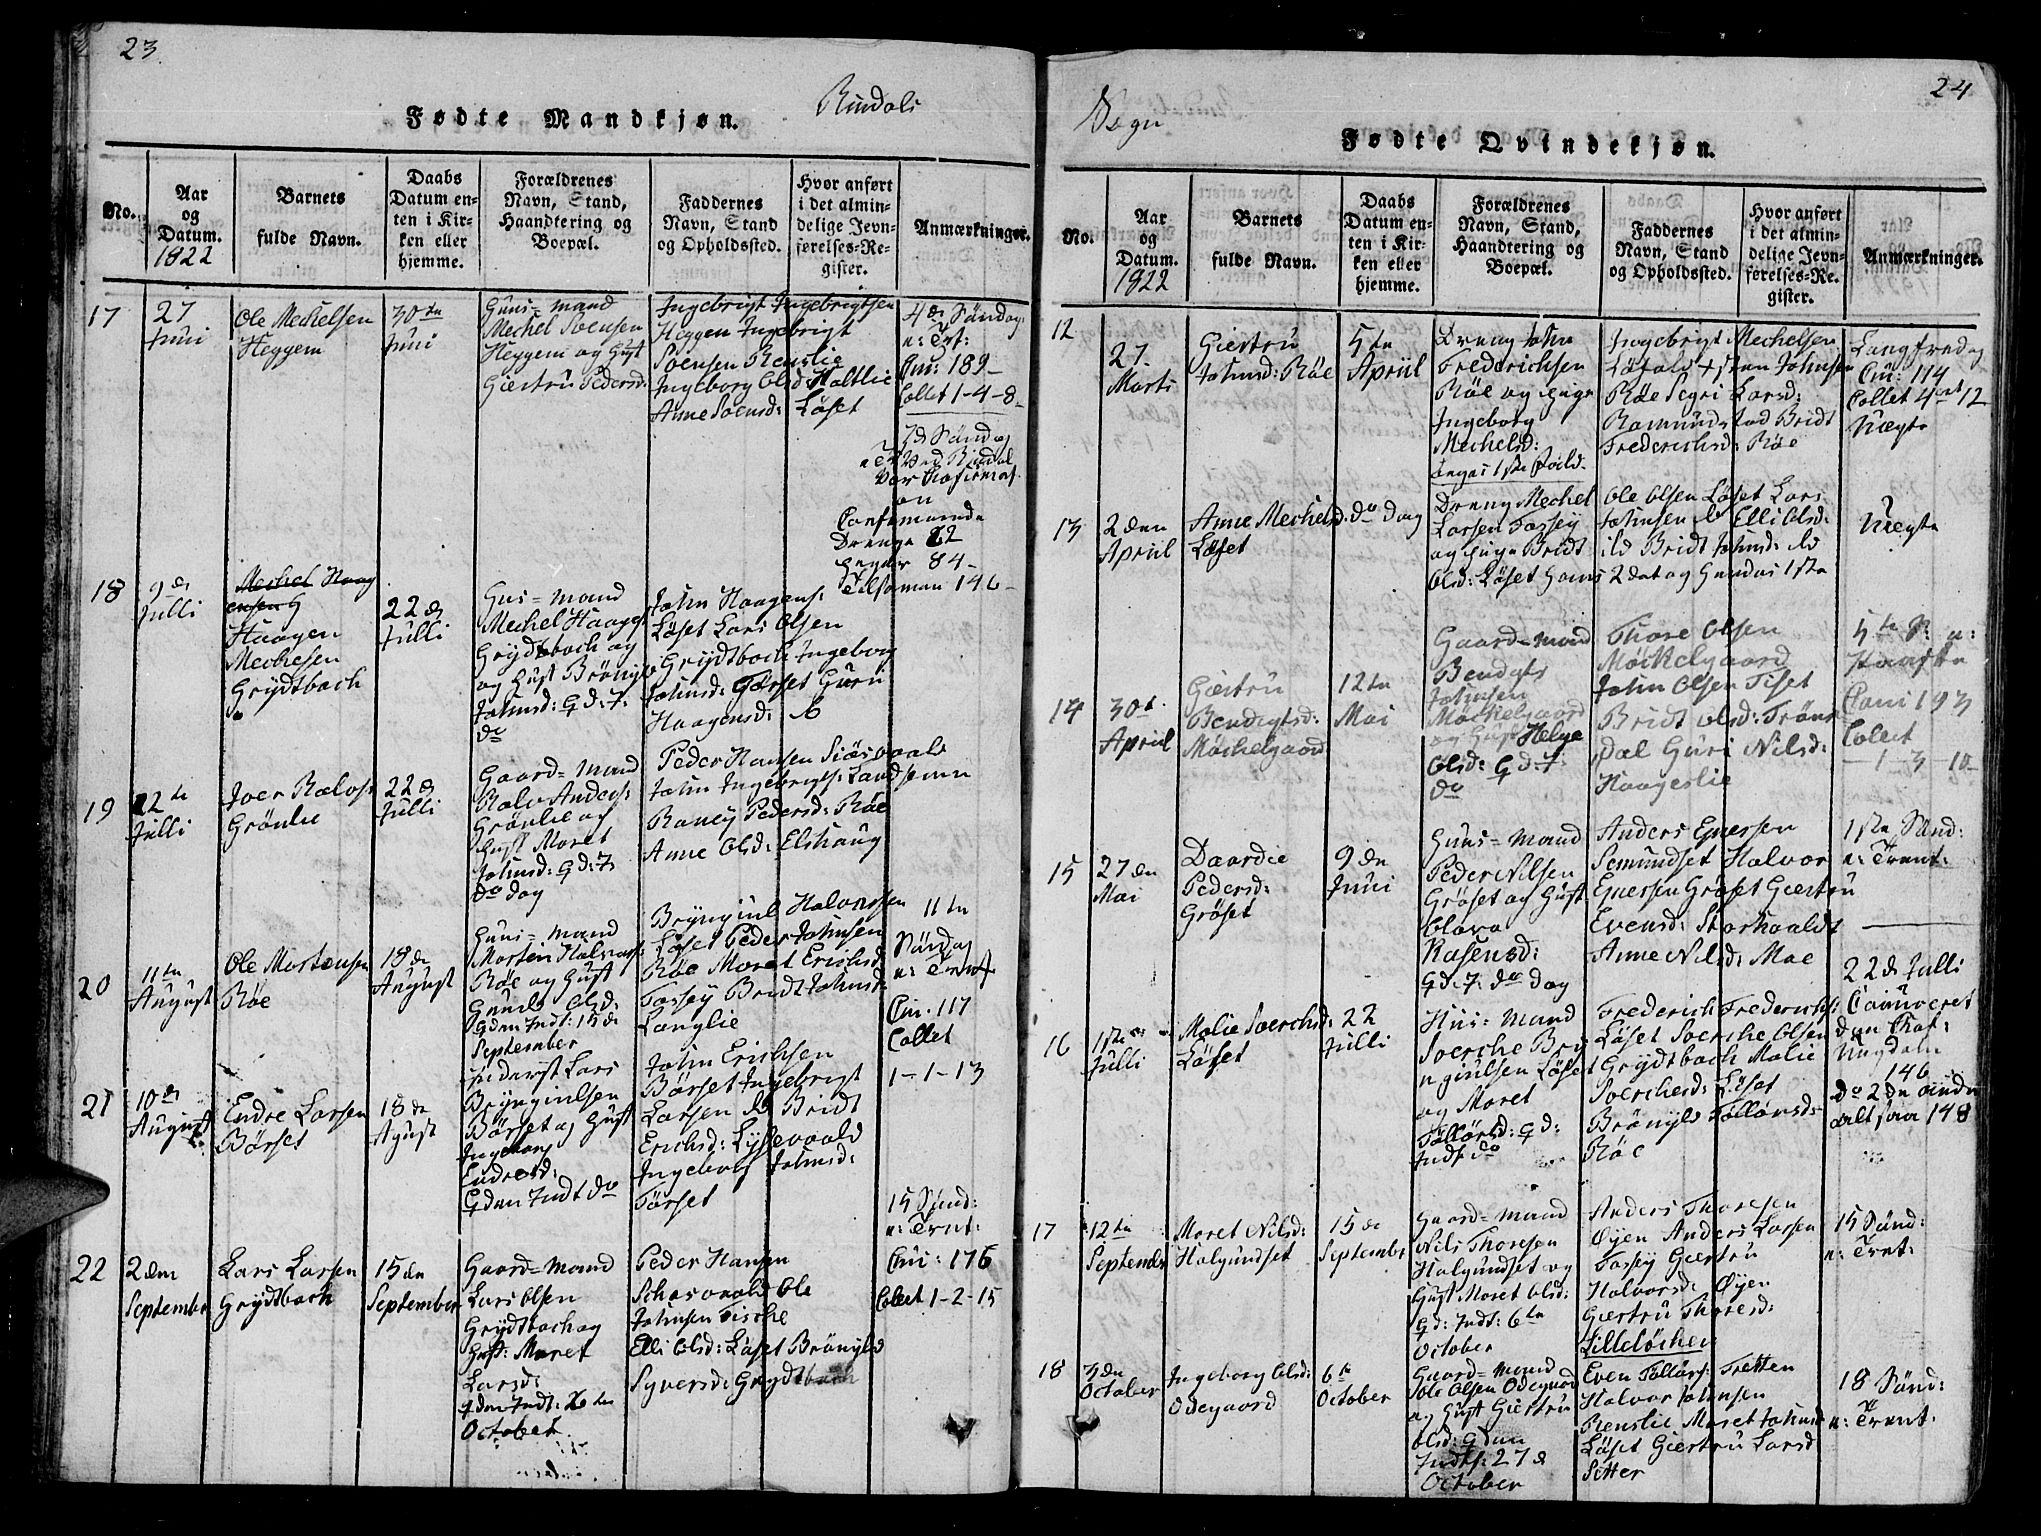 23.
Rindals
Fødte Mandkjøn.
No.
Aar
og
Datum.
1822
Barnets
fulde Navn.
Daabs
Datum en-
ten i Kir-
ken eller
hjemme.
Forældrenes
Navn, Stand,
Haandtering og
Boepæl.
Faddernes
Navn, Stand
og Opholdssted.
Hvor anført
i det almin-
delige Jevn-
førelses-Re-
gister.
Anmærkninger.
17
27
Juni
Ole Mechelsen
Heggem
30te
Juni
Huus=mand
Mechel Svensen
Heggem og Hust
Giertru Pedersd:
Ingebrigt Ingebrigtsen
Heggem Ingebrigt
Svensen Renslie
Ingeborg Olsd: Holtlie
Anne Svensd: Løset
4de Søndag
e: Trt:
Cm: 189
Collet 1-4-8
7d Søndag
e Tr Ved Rindal
Var Confirmas
on
Confirmande
Drenge 62
Piger 84
Tilsaman 146
18
9de
Julli
Mechel Haag
ensen G
Haagen
Mechesen
Grydtbach
22de
Julli
Huus=mand
Mechel Haagen
Grydtbach og
og Hust Brønild
Johnsd: G d: 7.
do
John Haagens:
Løset Lars Olsen
Grydtbach Ingeborg
Johnsd: Gørset Guri
Haagensd: do
19
22de
Julli
Joer Ralvs:
Grønlie
22de
Julli
Gaard=mand
Ralv Anders:
Grønlie og
Hust Moret
Johnsd: G d: 7.
do dag
Peder Hansen Siøsvaald
John Ingebrigts: Landsemm
Raney Pedersd: Røe
Anne Olsd: Elshaug
20
11te
August
Ole Mortensen
Røe
18de
August
Huus=mand
Morten Halvors:
Røe og Hust
Gunild Olsd:
G den Indt: 15de
September
Bryngiul Halvorssen
Løset Peder Johnsen
Røe Moret Erichsd:
Fossey Bridt Johnsd:
Langlie
11te
Søndag
e: Trent
Cm: 117
Collet
1-1-13
21
10de
August
Endre Larsen
Børset
18de
Agust
Inderst Lars
Bryngiulsen
Børset og Hust
Ingeborg
Endresd:
G den Indt do
John Erichsen
Børset Ingebrigt
Larsen do Bridt
Erichsd: Lysevaald
Ingeborg Johnsd:
Tørset
22
2den
September
Lars Larsen
Grydtbach
15den
September
Gaard=mand
Lars Olsen
Grydtbach og
Hust: Moret
Larsd:
G den Indt: 26te
October
Peder Hansen
Schosvaald Ole
Johnsen Tische
Elli Olsd: Løset Brønild
Syversd: Grydtbach
15 Sønd:
e: Trnt:
Cm: 176
Collet 1-2-15
24
Sogn
Fødte Qvindekjøn.
No.
Aar
og
Datum.
1822
Barnets
fulde Navn.
Daabs
Datum en-
ten i Kir-
ken eller
hjemme.
Forældrenes
Navn, Stand,
Haandtering og
Boepæl.
Faddernes
Navn, Stand
og Opholdssted.
Hvor anført
i det almin-
delige Jevn-
førelses-Re-
gister.
Anmærkninger.
12
27.
Marts
Giertru
Johnsd: Røe
5te
Apriil
Dreng John
Frederichsen
Røe og Pige
Ingeborg
Mechelsd:
Ingebrigt Mechelsen
John Johnsen
Røe Segri Larsd:
Romundstad Bridt
Frederichsd: Røe
Langfredag
Cm: 114
Collet 4 ort 12
Uægte
13
2den
Apriil
Anne Mechelsd.
Løset
do dag
Dreng Mechel
Larsen Fossey
og Pige Bridt
Olsd: Løset Hans 2det og Hendes 1ste
Ole Olsen Løset Lars
Johnsen do Elli Olsd:
ibd Bridt Johnsd: ibd
Uægte
14
30te
Apriil
Giertru
Bendigtsd:
Møchelgaard
12te
Mai
Gaard=mand
Bendigts
Johnsen
Møchelgaard
og Hust Helge
Olsd: G d: 7.
do
Thore Olsen
Møchelgaard
John Olsen Tiset
Bridt Olsd: Trøns
dal Guri Nilsd:
Haageslie
5te S: e:
Paaske
Comi 193
Collet
1-3-10
15
27den
Mai
Daardie
Pedersd:
Grøset
9de
Juni
Huus=mand
Peder Nilsen
Grøset og Hust
Olava
Rasensd:
G d. 7: do dag
Anders Enersen
Semundset Halvor
Enersen Grøset Giertru
Evensd: Storhaaldt
Anne Nilsd: Moe
1ste Sønd:
e: Trent:
16
1ste
Julli
Malie Sverchsd:
Løset
22
Julli
Huus=mand
Sverche Bry
ngiulsen Løset
og Moret
Tollørsd: G d:
Indt do
Frederich Frederichs:
Løset Sverche Olsen
Grydtbach Malie
Sverchesd: Løset
Brønyld Tollørsd:
Røe
22de Julli
Comuneret
den Conf:
Ungdom
146
do 2den andre
alt saa 148
17
12te
September
Moret Nilsd:
Halgundset
15de
September
Gaard=mand
Nils Thoresen
Halgundset og
Hust Moret Olsd:
G d: Indt: 6te
October
Anders Thoresen
Øyen Anders Larsen
Fossey Giertru
Halvorsd: Øyen
Giertru Thoresd:
Lilleløchen
15 Sønd:
e: Trnt:
18
3den
October
Ingeborg Olsd:
Ødegaard
6te
October
Gaard=mand
Ole Olsen Ødegaard
og Hust Giertru
Olsd: G den
Indt: 27de
October
Even Tollørs: Tretten
Halvor Johnsen
Renslie Moret Johnsd
Løset Giertru Larsd
Setter
18 Sønd:
e: Trnt: